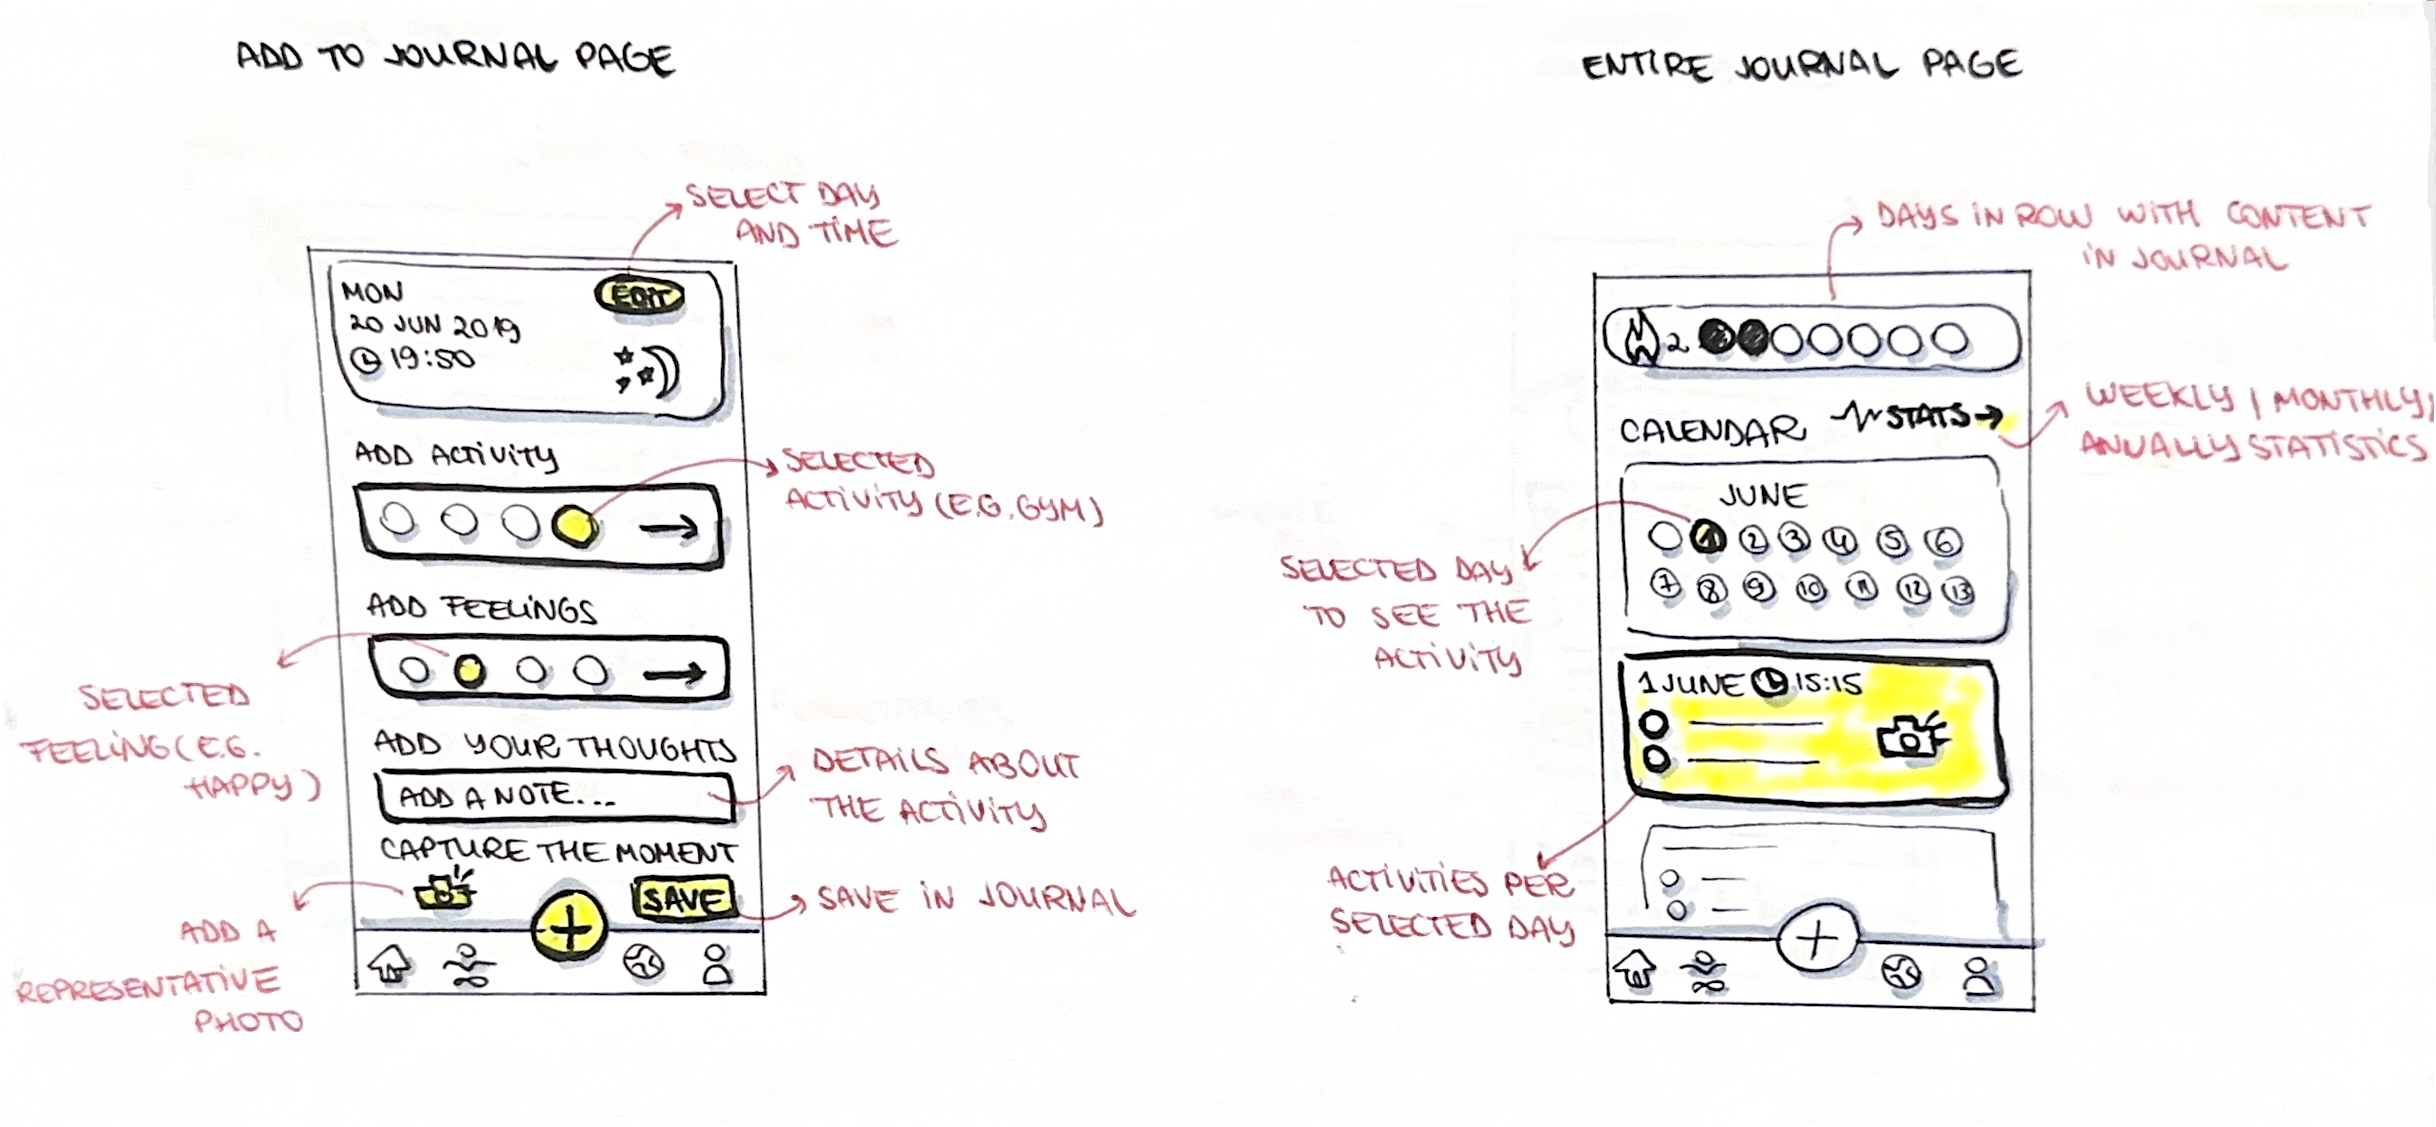 ADD TO JOURNAL PAGE
SELECT DAY
AND TIME
MON
EDIT
20 JUN 2019
19:50
ADD ACTIVITY
SELECTED
ACTIVITY (E.G. GYM)
ADD FEELINGS
SELECTED
FEELING (E.G.
HAPPY)
ADD YOUR THOUGHTS
ADD A NOTE...
DETAILS ABOUT
THE ACTIVITY
CAPTURE THE MOMENT
SAVE
SAVE IN JOURNAL
+
ADD A
REPRESENTATIVE
PHOTO
ENTIRE JOURNAL PAGE
DAYS IN ROW WITH CONTENT
IN JOURNAL
2
CALENDAR STATS →
WEEKLY / MONTHLY /
ANUALLY STATISTICS
JUNE
1 2 3 4 5 6
7 8 9 10 11 12 13
SELECTED DAY
TO SEE THE
ACTIVITY
1 JUNE 15:15
ACTIVITIES PER
SELECTED DAY
+